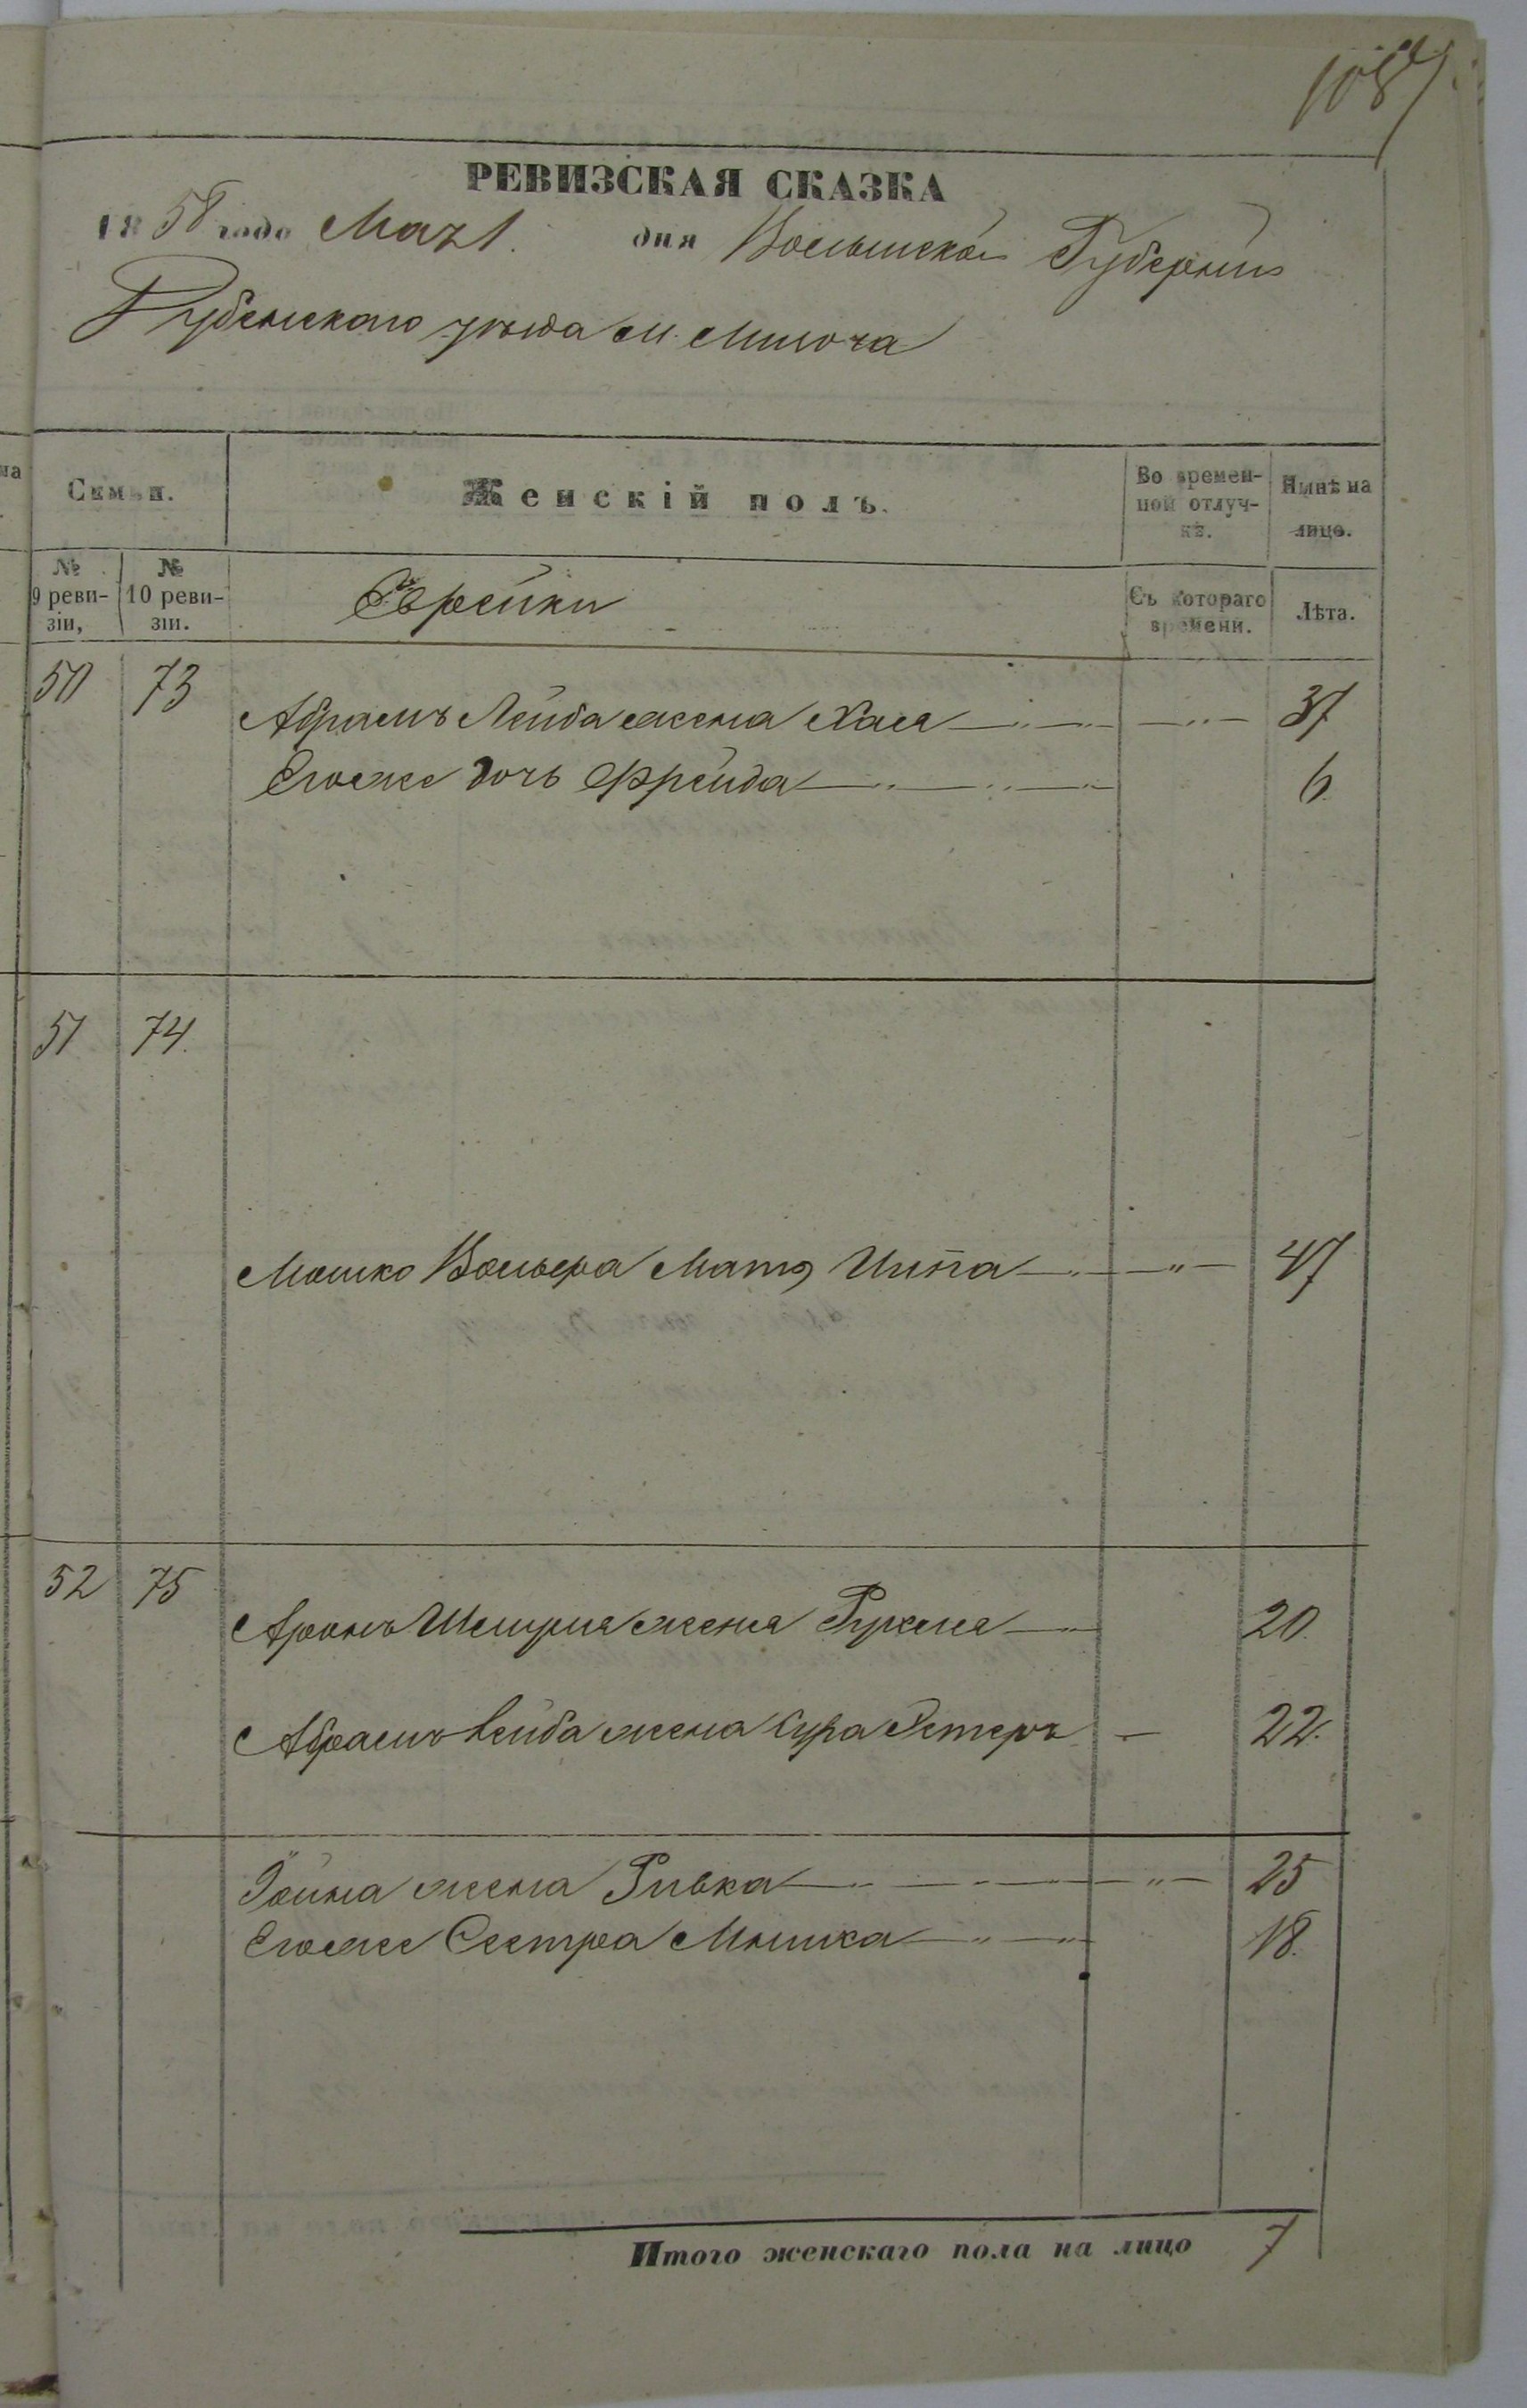 108
РЕВИЗСКАЯ СКАЗКА
1858 года Мая 1. дня Волынской Губерніи
Дубенскаго уѣзда м. Млинова
Семьи.
Женскій полъ.
Во времен-
ной отлуч-
кѣ.
Нынѣ на
лицо.
№
9 реви-
зіи,
№
10 реви-
зіи.
Еврейки
Съ котораго
времени.
Лѣта.
50 73
Абрамъ Лейба жена Хася 37
Егоже дочь Фрейда 6.
51 74.
Мошко Вольфа Мать Ципа 47
52 75
Аронъ Шмуля жена Рухля 20.
Абрамъ Лейба жена Сура Эстеръ 22.
жена Ривка 25
Егоже Сестра 18.
Итого женскаго пола на лицо 7